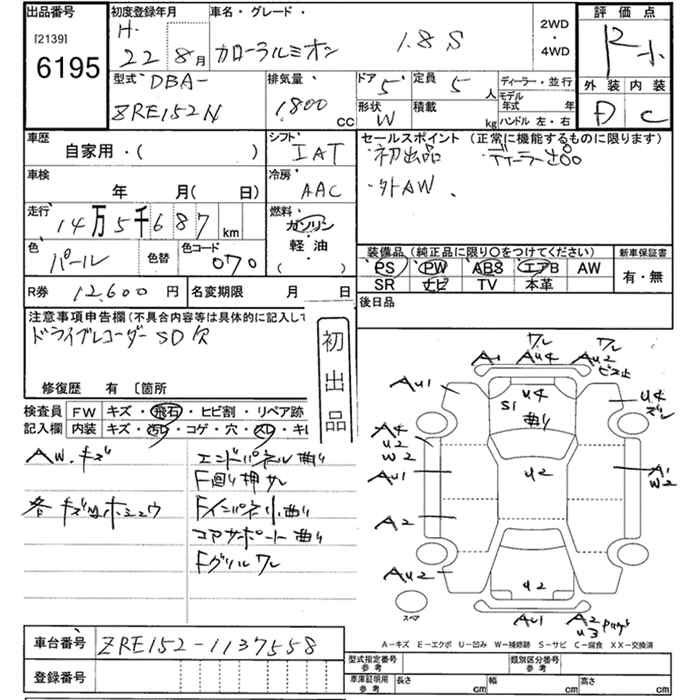 出品番号
[2139]
6195
初度登録年月
H.
22 8月
車名・グレード・
カローラルミオン 1.8 S
2WD
・
4WD
評価点
R小
外装 内装
D C
型式 DBA-
ZRE152N
排気量・
1800
CC
ドア 5
定員 5 人
形状 W
積載 kg
ディーラー・並行
モデル
年式 年
ハンドル 左・右
車歴
自家用・( )
シフト
IAT
セールスポイント (正常に機能するものに限ります)
・初出品 ・ディーラー
・外AW、
車検
年 月(日)
冷房
AAC
走行
14万5千687 km
燃料
ガソリン
・
軽油
( )
色
パール
色替
色コード
070
装備品 (純正品に限り〇をつけてください)
PS PW ABS エアB AW
SR ナビ TV 本革
新車保証書
有・無
R券 12,600 円
名変期限 月 日
後日品
注意事項申告欄 (不具合内容等は具体的に記入して
ドライブレコーダー SD欠
修復歴 有 〔箇所
初出品
検査員
記入欄
FW キズ・飛石・ヒビ割・リペア跡
内装 キズ・汚レ・コゲ・穴・スレ・キレ
AW.キズ
各キズ凹ホシュウ
エンドパネル曲り
F廻り押サレ
Fインパネ小曲り
コアサポート曲り
Fグリルワレ
A1
ワレ
AU4
ワレ
AU2
ビス止
AU1
U4
S1
曲り
U4
ズレ
A4
U2
W2
AU1
U2
A1
W2
A2
AU2
U2
スペア
AU1
A2
U3
A-キズ E-エクボ U-凹み W-補修跡 S-サビ C-腐食 XX-交換済
車台番号 ZRE152-1137558
登録番号
型式指定番号
参考
類別区分番号
参考
車庫証明用
参考
長さ cm
幅 cm
高さ cm